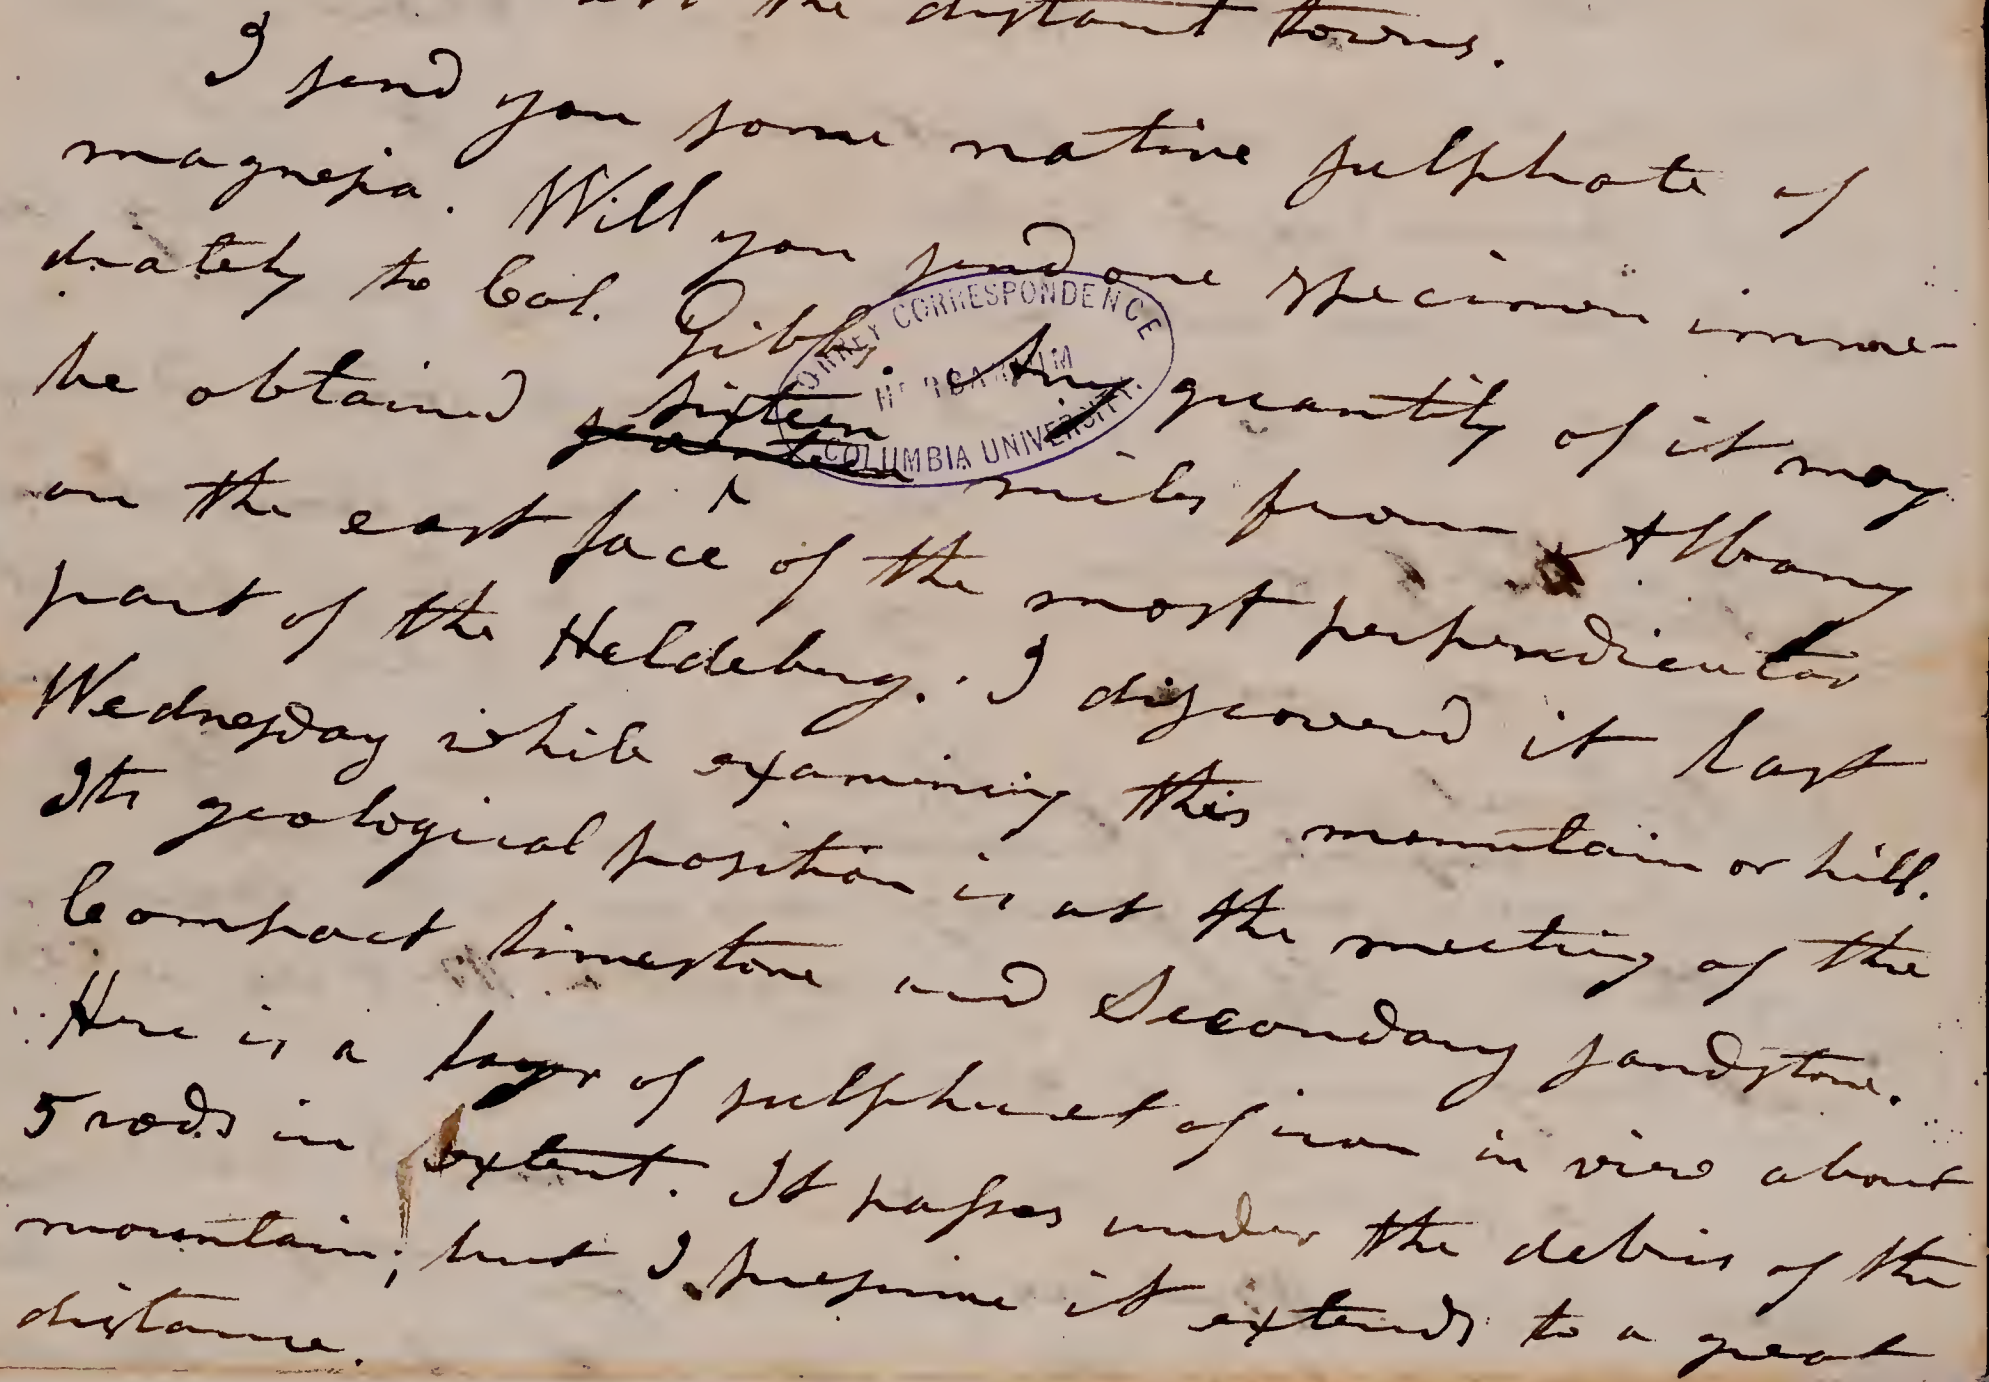 the distant towns.
I send you some native sulphate of
magnesia. Will you send one specimen imme-
diately to Col. Gibbs. Any quantity of it may
be obtained seventeen sixteen miles from Albany
on the east face of the most perpendicular
part of the Heldeberg. I discovered it last
Wednesday while examining this mountain or hill.
Its geological position is at the meeting of the
Compact limestone and Secondary sandstone.
Here is a layer of sulphuret of iron in view about
5 rods in extent. It passes under the debris of the
mountain; but I presume it extends to a great
distance.
TORREY CORRESPONDENCE
HERBARIUM
COLUMBIA UNIVERSITY.